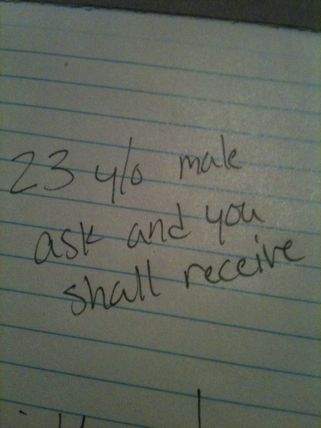 23 y/o male
ask and you
shall receive